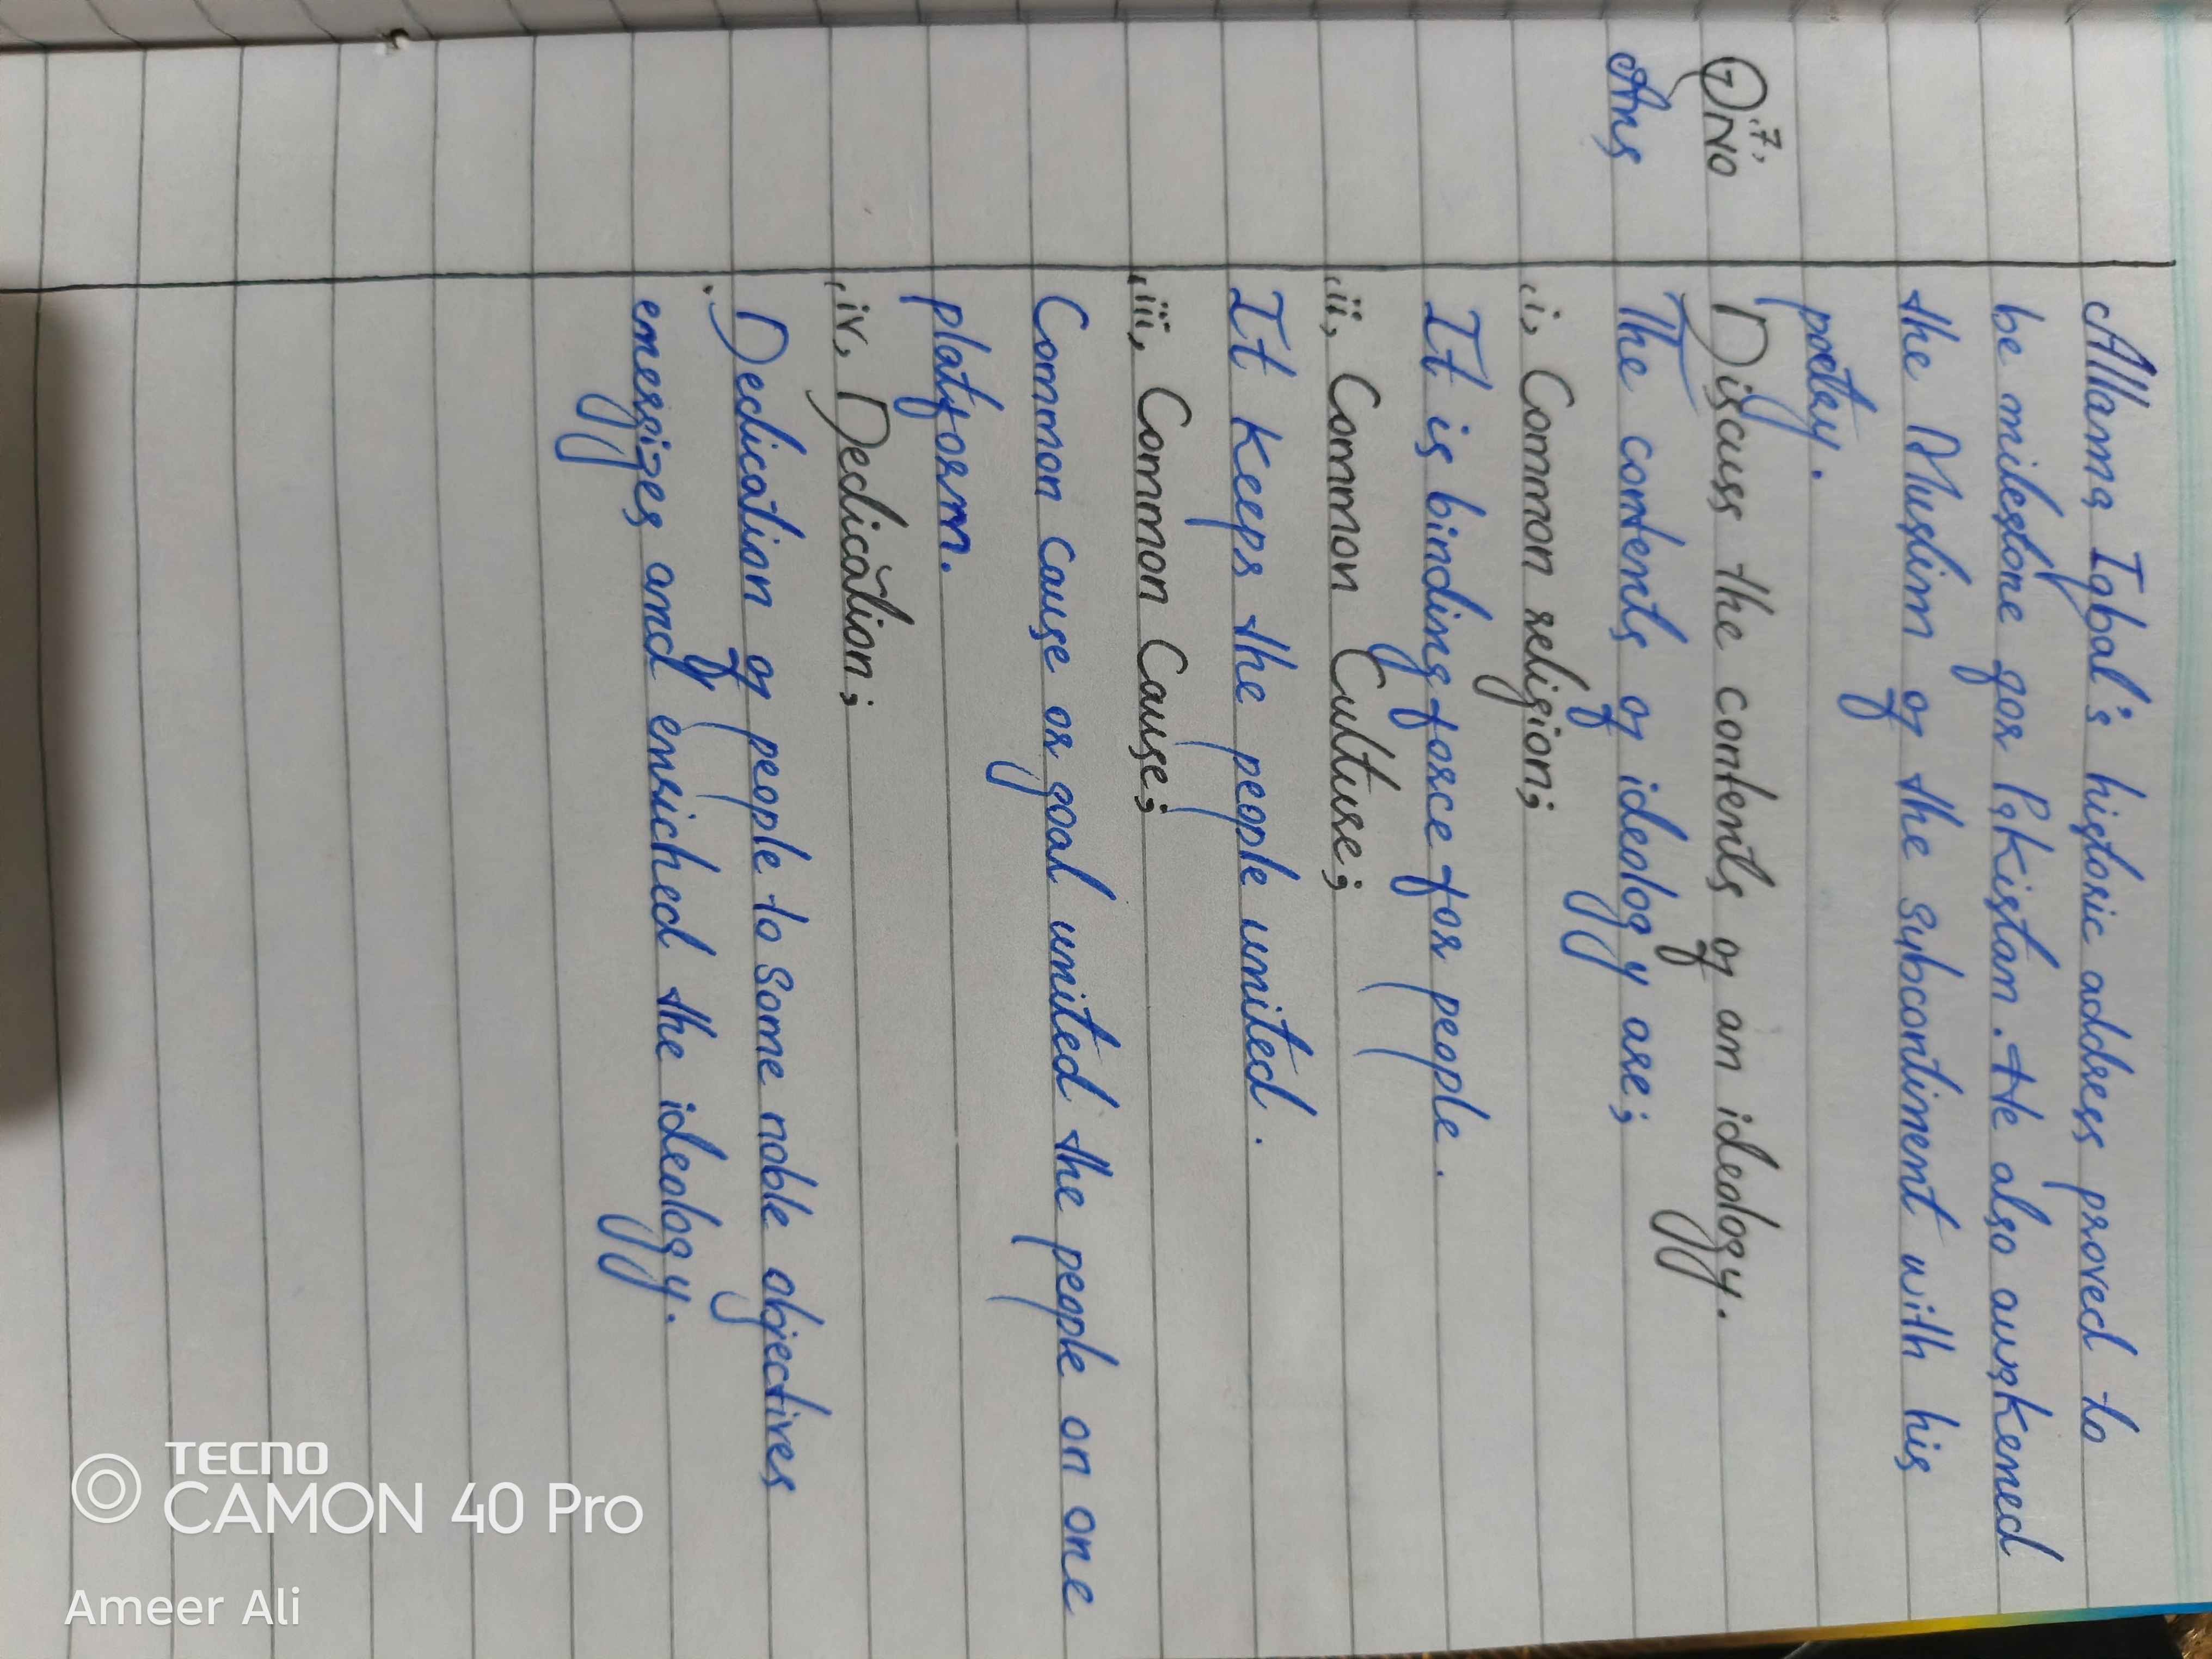 Allama Iqbal's historic address proved to
be milestone for Pakistan. He also awakened
the Muslim of the subcontinent with his
poetry.
Q NO ,7, Discuss the contents of an ideology.
Ans The contents of ideology are;
(i) Common religion;
It is binding force for people.
(ii) Common Culture;
It keeps the people united.
(iii) Common Cause;
Common cause or goal united the people on one
platform.
(iv) Dedication;
Dedication of people to some noble objectives
energizes and enriched the ideology.
TECNO
CAMON 40 Pro
Ameer Ali